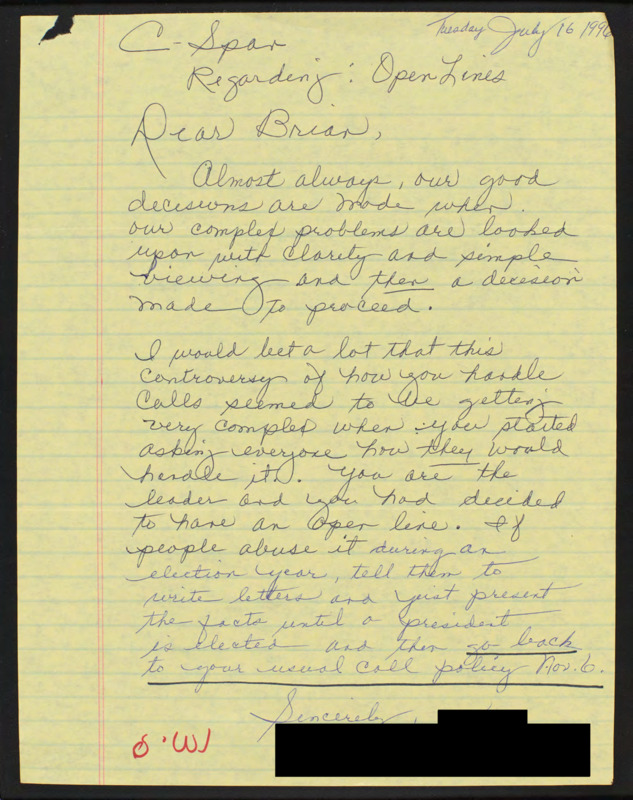 Tuesday July 16 1996
C-Span
Regarding: Open Lines
Dear Brian,
Almost always, our good
decisions are made when
our complex problems are looked
upon with clarity and simple
viewing and then a decision
made to proceed.
I would bet a lot that this
controversy of how you handle
calls seemed to be getting
very complex when you started
asking everyone how they would
handle it. You are the
leader and you had decided
to have an open line. If
people abuse it during an
election year, tell them to
write letters and just present
the facts until a president
is elected and then go back
to your usual call policy Nov. 6.
Sincerely,